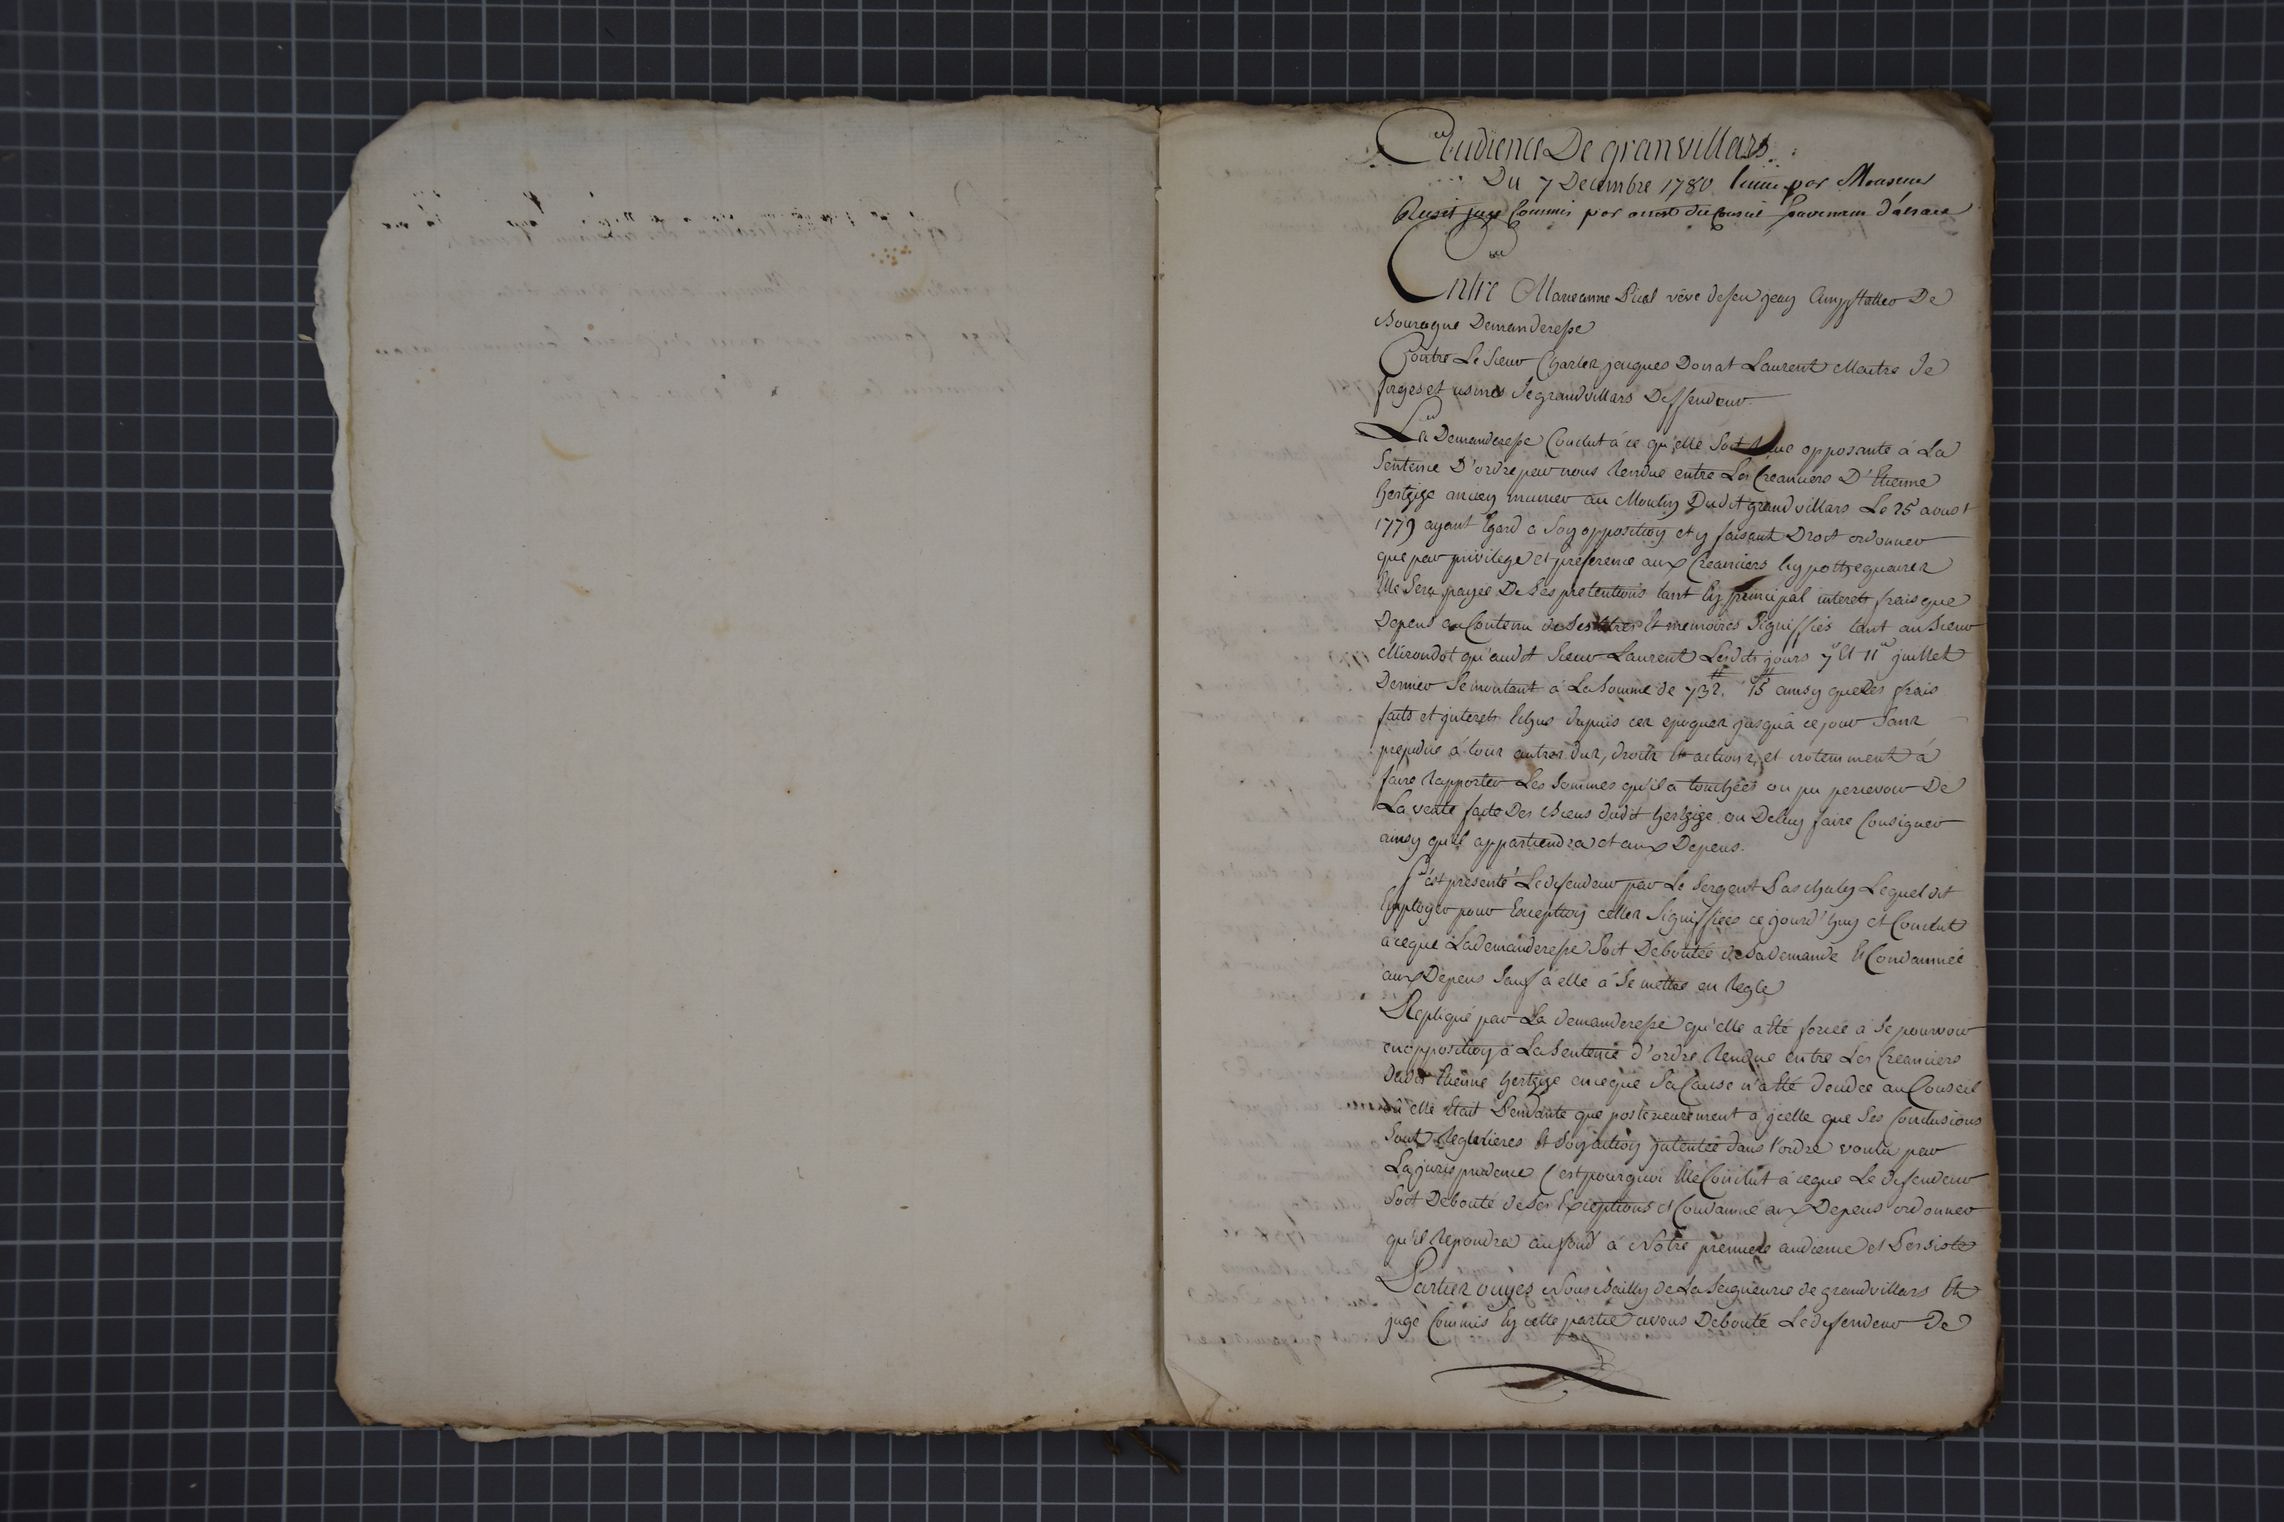 Audience De granvillars
Du 7 Decembre 1780 tenue par Monsieur
juge Commis par arrest du Conseil Souverain d'alsace
Entre Marieanne Picat véve de feu jean De
Bourogne Demanderesse
Contre Le Sieur Charles jacques Donat Laurent Maitre de
forges et usines de grandvillars Deffendeur
La Demanderesse Conclut à ce qu'elle soit opposante à La
Sentence D'ordre par nous Rendue entre Les Creanciers D'Etienne
hertzige ancien munier au Moulin Dudit grandvillars Le 25 aoust
1779 ayant Egard a son opposition et y faisant Droit ordonner
que par privilege et preference aux Creanciers hypottequaires
Elle sera payée De ses pretentions tant En principal interets frais que
Depens au Contenu de ses titres Et memoires signiffiés tant au Sieur
Mirondot qu'audit Sieur Laurent Lesdits jours 7e Et 11e juillet
Dernier se montant à La Somme de 732.# 15s ainsy que Les frais
faits et interets Echus depuis ces epoques jusqu'à ce jour sans
prejudice à tous autres dus, droits Et actions, et notemment à
faire Rapporter Les Sommes qu'il a touchées ou pu percevoir De
La vente faite Des Biens dudit hertzige ou Deluy faire Consigner
ainsy qu'il appartiendra et aux Depens.
S'est presenté Le defendeur par Le sergent Paschaly Lequel dit
Employer pour Exception celles signiffiées ce jourd'huy et Conclut
à ceque La demanderesse soit Deboutée de sa demande Et Condamnée
aux Depens sauf à elle à se mettre en Regle
Repliqué par La demanderesse qu'elle a Eté forcée à se pourvoir
en opposition à La sentence d'ordre Rendue entre Les Creanciers
dudit Etienne hertzige en ceque sa Cause n'a Eté au Conseil
où elle Etait Pendante que posterieurement a jcelle que ses Conclusions
sont Regulieres Et son action jntentée dans l'ordre voulu par
La jurisprudence C'est pourquoi Elle Conclut à ceque Le defendeur
soit Debouté de ses Exceptions et Condamné aux Depens ordonner
qu'il Repondra au fond a Notre premiere audience et Persiste
Parties ouyes Nous Bailly de La Seigneurie de grandvillars Et
juge Commis En cette partie avons Debouté Le defendeur De